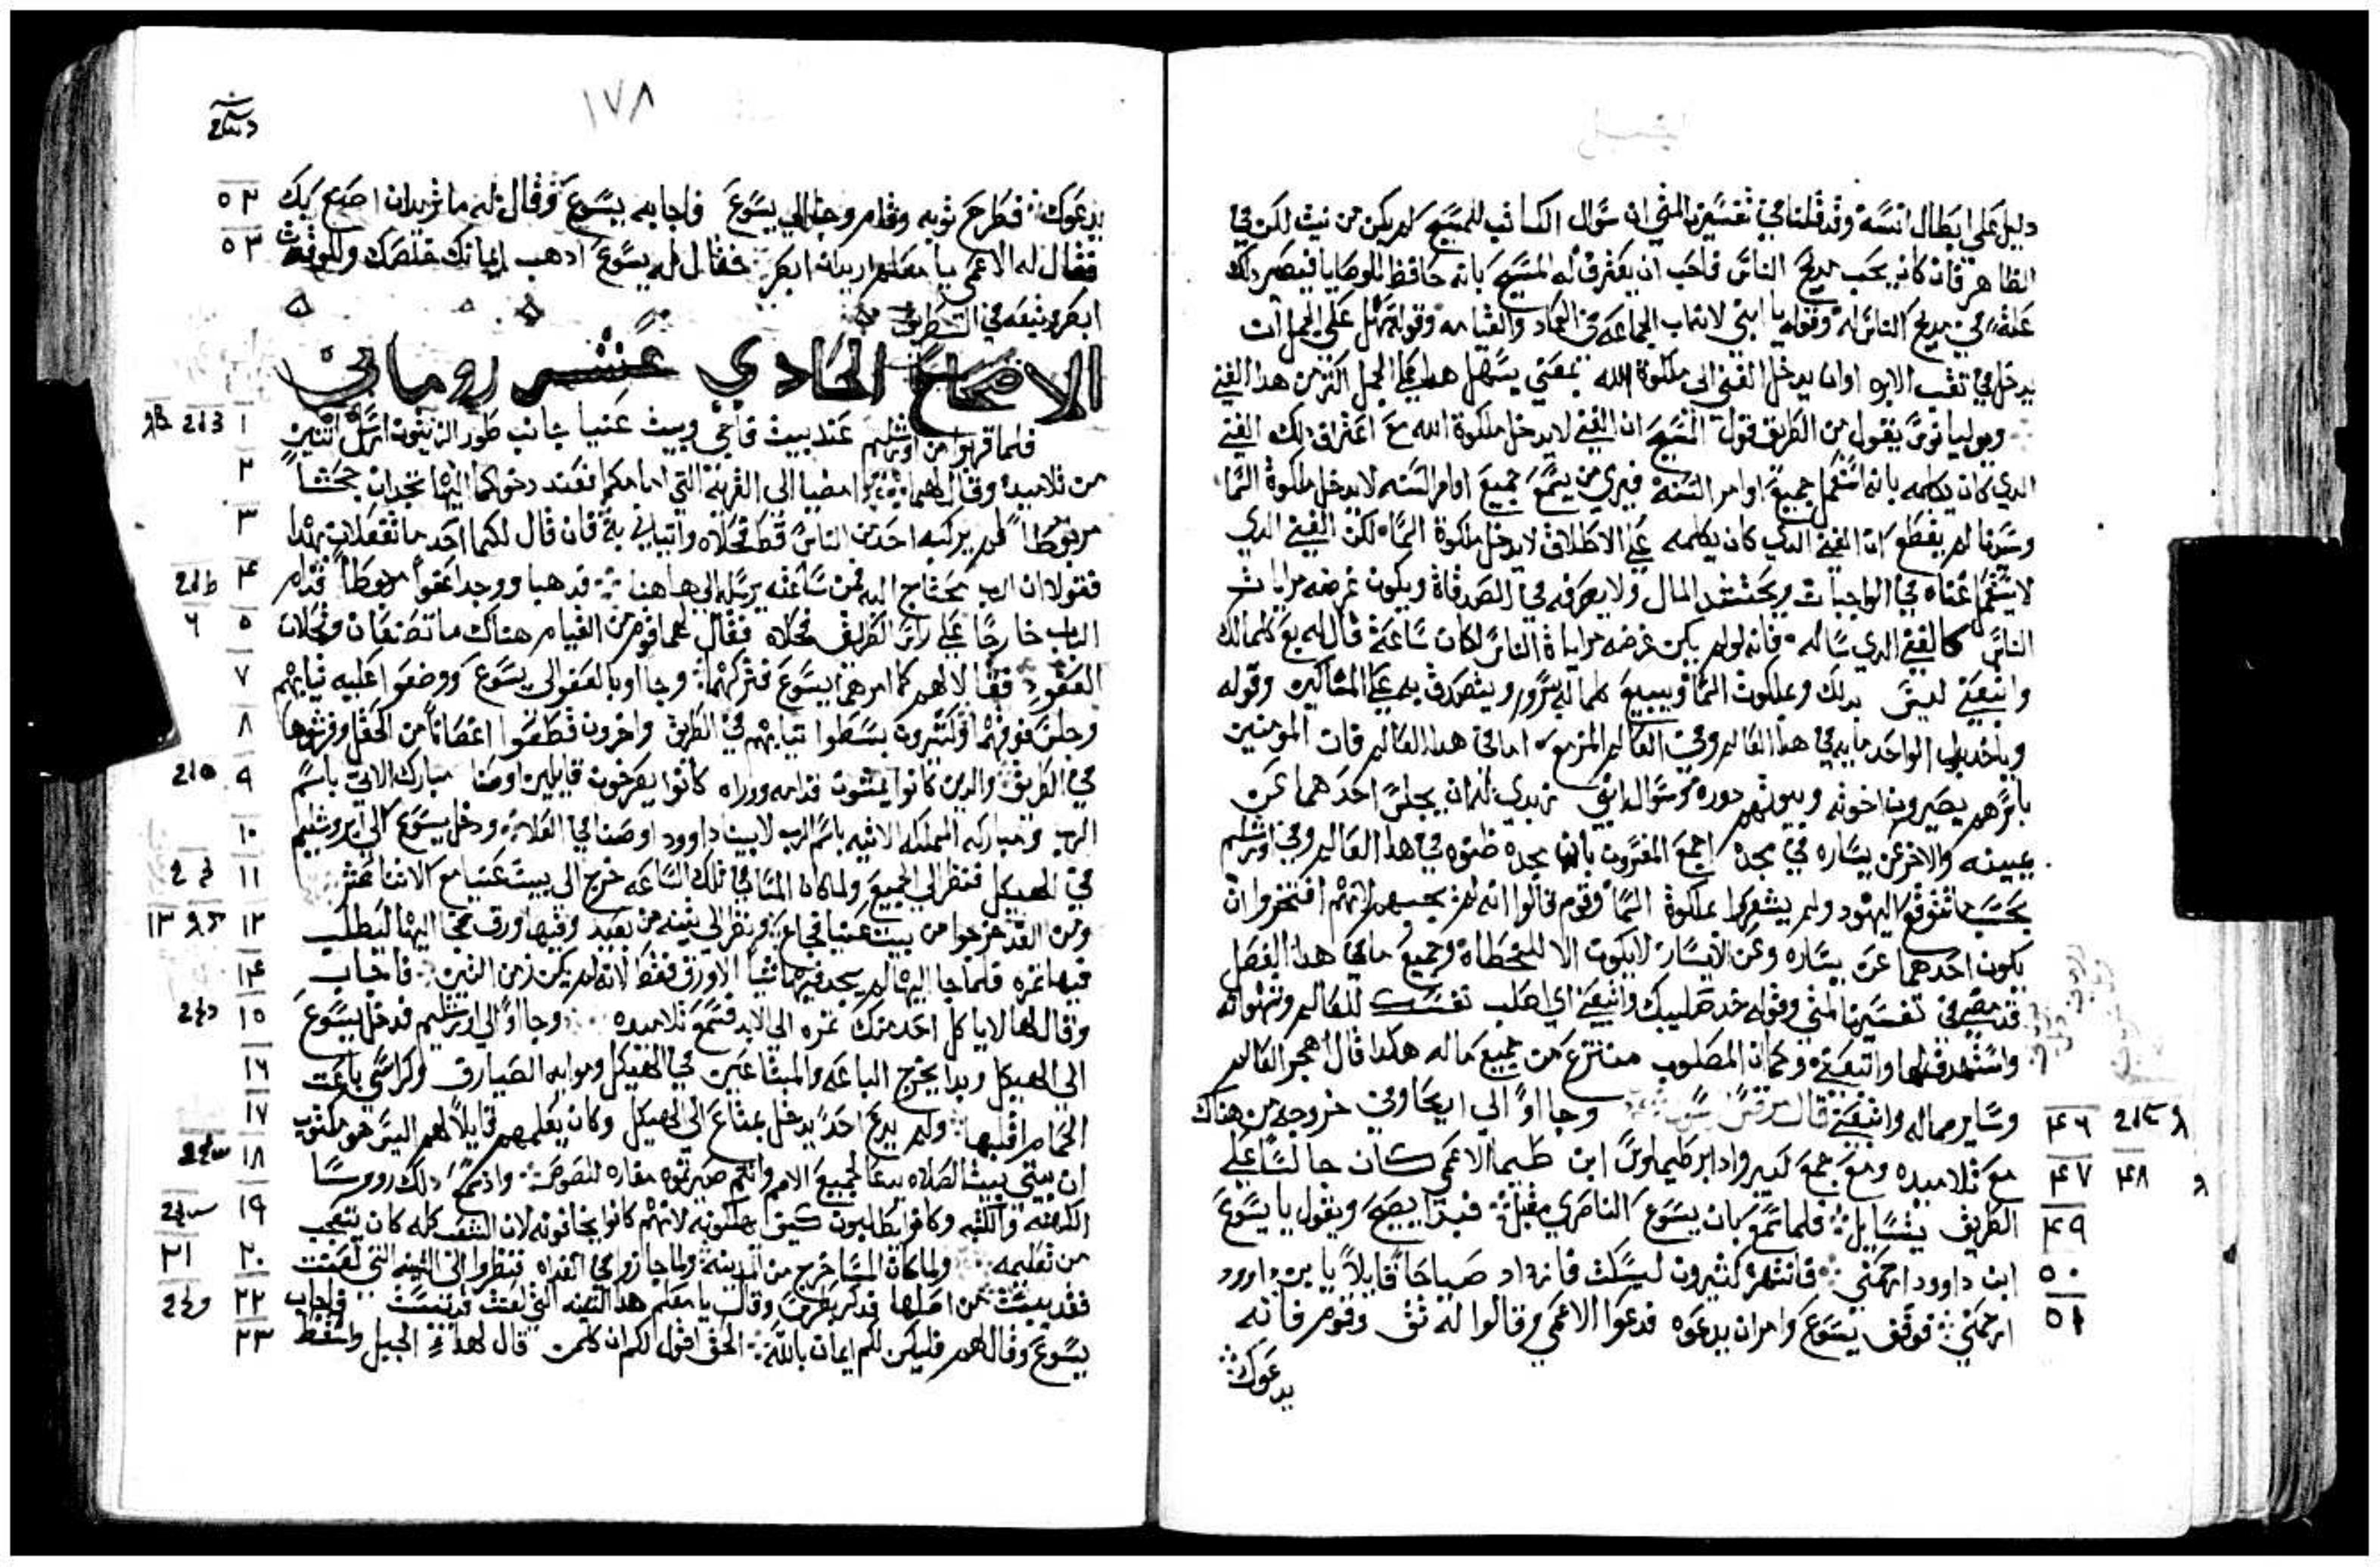 دليل علي ابطال انسه وقد قلنا في تفسيرنا لمتي ان سوال الكاتب للمسيح لم يكن من نيث لكن في
الظاهر فان كان يحب مديح الناس فاحب ان يعترف له المسيح بانه حافظ للوصايا فيصير ذلك
علة في مديح الناس له وقوله يا ابني لانما ب الجماعه في العماد والقيامه وقوله تمهل علي الجمل ان
يدخل في تقب الابره اوان يدخل الغني الي ملكوة الله بمعني يسهل هدا علي الجمل اكثر من هدا الغني
وبوليانوس يقول من الطريق قول المسيح ان الغني لا يدخل ملكوة الله مع اعتراف دلك الغني
الدي كان يكلمه بانه استعمل جميع اوامر السنه فيري من يتمع جميع اوامر السنه لا يدخل ملكوة السما
وسيدنا لم يقطع ان الغني الدي كان يكلمه علي الاطلاق لا يدخل ملكوة السما لكن الغني الدي
لا يستعمل غناه في الواجبات ويحتشد المال ولا يصرفه في الصدقاة ويكون غرضه مراياة
الناس كالغني الدي ساله فانه لو لم يكن غرضه مراياة الناس لكان ساعة قال له بع كلما لك
واتبعني ليس بدلك وملكوت السما ويبيع كلما له بسرور ويتصدق به علي المساكين وقوله
وياخد بدل الواحد مايه في هدا العالم وفي العالم المزمع اما في هدا العالم فان المومنين
باسرهم يصيرون اخوته وبيوتهم دوره وسوال ابني زبدي له ان يجلس احدهما عن
يمينه والاخر عن يساره في مجده اجمع المفسرون بان مجده ظنوه في هدا العالم وفي اورشليم
بحسب ما تتوقع اليهود ولم يشعروا بملكوة السما وقوم قالوا انه لم يجبهم لانهم افتخروا ان
يكون احدهما عن يساره وعن اليسار لا يكون الا للخطاة وجميع ما في هدا الفصل
قد مضي في تفسيرنا لمتي وقوله خد صليبك واتبعني اي اصلب نفسك للعالم وشهواته
واستهدف لها واتبعني وكما ان المصلوب منتزع من جميع ماله هكدا قال اهجر العالم
وساير ماله واتبعني قال مرقس وجااوا الي ايحا وفي خروجه من هناك ٤٦
مع تلاميده ومع جمع كبير وادا برطيماوس ابن طيما الاعمي كان جالسا علي ٤٧ ٤٨
الطريق يتسايل فلما سمع بان يسوع الناصري مقبل فبدا يصيح ويقول يا يسوع ٤٩
ابن داوود ارحمني فانتهره كثيرون ليسكت فازداد صياحا قايلا يا بن داوود ٥٠
ارحمني فوقف يسوع وامر ان يدعوه فدعوا الاعمي وقالوا له ثق وقوم فانه ٥١
يدعوك
١٧٨
يدعوك فطرح ثوبه وقام وجا الي يسوع فاجابه يسوع وقال له ما تريد ان اصنع بك
فقال له الاعمي يا معلم اريد ان ابصر فقال له يسوع ادهب ايمانك خلصك وللوقت ٥٣
ابصر وتبعه في الطريق
الاصحاح الحادي عشر روماني
فلما قربوا من اورشليم عند بيت فاجي وبيت عنيا جانب طور الزيتون ارسل اثنين ١
من تلاميده وقال لهما امضيا الي القرية التي امامكم فعند دخولكما اليها تجدان جحشا ٢
مربوطا لم يركبه احد من الناس قط فحلاه واتياني به فان قال لكما احد ما تفعلان بهدا ٣
فقولا ان الرب يحتاج اليه فمن ساعته يرسله الي هاهنا فدهبا ووجدا عفوا مربوطا قدام ٤
الباب خارجا علي راس الطريق فحلاه فقال لهما قوم من القيام هناك ما تصنعان وتحلان ٥ ٦
العفو فقالا لهم كما امرهما يسوع فتركهما وجااوا بالعفو الي يسوع ووضعوا عليه ثيابهم ٧
وجلس فوقهم وكثيرون بسطوا ثيابهم في الطريق واخرون قطعوا اغصانا من الحقل وفرشوها ٨
في الطريق والدين كانوا يمشون قدامه ووراه كانوا يصرخون قايلين اوصنا مبارك الاتي باسم ٩
الرب ومباركه المملكه الاتيه باسم الرب لابينا داوود اوصنا في العلا ودخل يسوع الي اورشليم ١٠
في الهيكل فنظر الي الجميع ولما كان المسا في تلك الساعه خرج الي بيت عنيا مع الاثنا عشر ١١
ومن الغد خرجوا من بيت عنيا فجاع ونظر الي تينه من بعيد وفيها ورق فجا اليها ليطلب ١٢ ١٣
فيها ثمره فلما جا اليها لم يجد فيها شيا الا ورق فقط لانه لم يكن زمن التين فاجاب ١٤
وقال لها لا ياكل احد منك ثمره الي الابد فسمع تلاميده وجااوا الي اورشليم فدخل يسوع ١٥
الي الهيكل وبدا يخرج الباعه والمبتاعين في الهيكل وموايد الصيارف وكراسي باعت ١٦
الحمام اقلبها ولم يدع احدا يدخل بمتاع الي الهيكل وكان يعلمهم قايلا لهم اليس هو مكتوب ١٧
ان بيتي بيت الصلاه يدعا لجميع الامم وانتم صيرتموه مغاره للصوص واد سمع دلك رووسا ١٨
الكهنه والكتبه وكانوا يطلبون كيف يهلكونه لانهم كانوا يخافونه لان الشعب كله كان يتعجب ١٩
من تعليمه ولما كان المسا خرج من المدينه ولما جازوا في الغداه فنظروا الي التينه التي لعنت ٢٠ ٢١
فقد يبست من اصلها فدكر بطرس وقال يا معلم هدا التينه التي لعنت قد يبست فاجاب ٢٢
يسوع وقال لهم فليكن لكم ايمان بالله الحق اقول لكم ان كلمن قال لهدا الجبل واسقط ٢٣